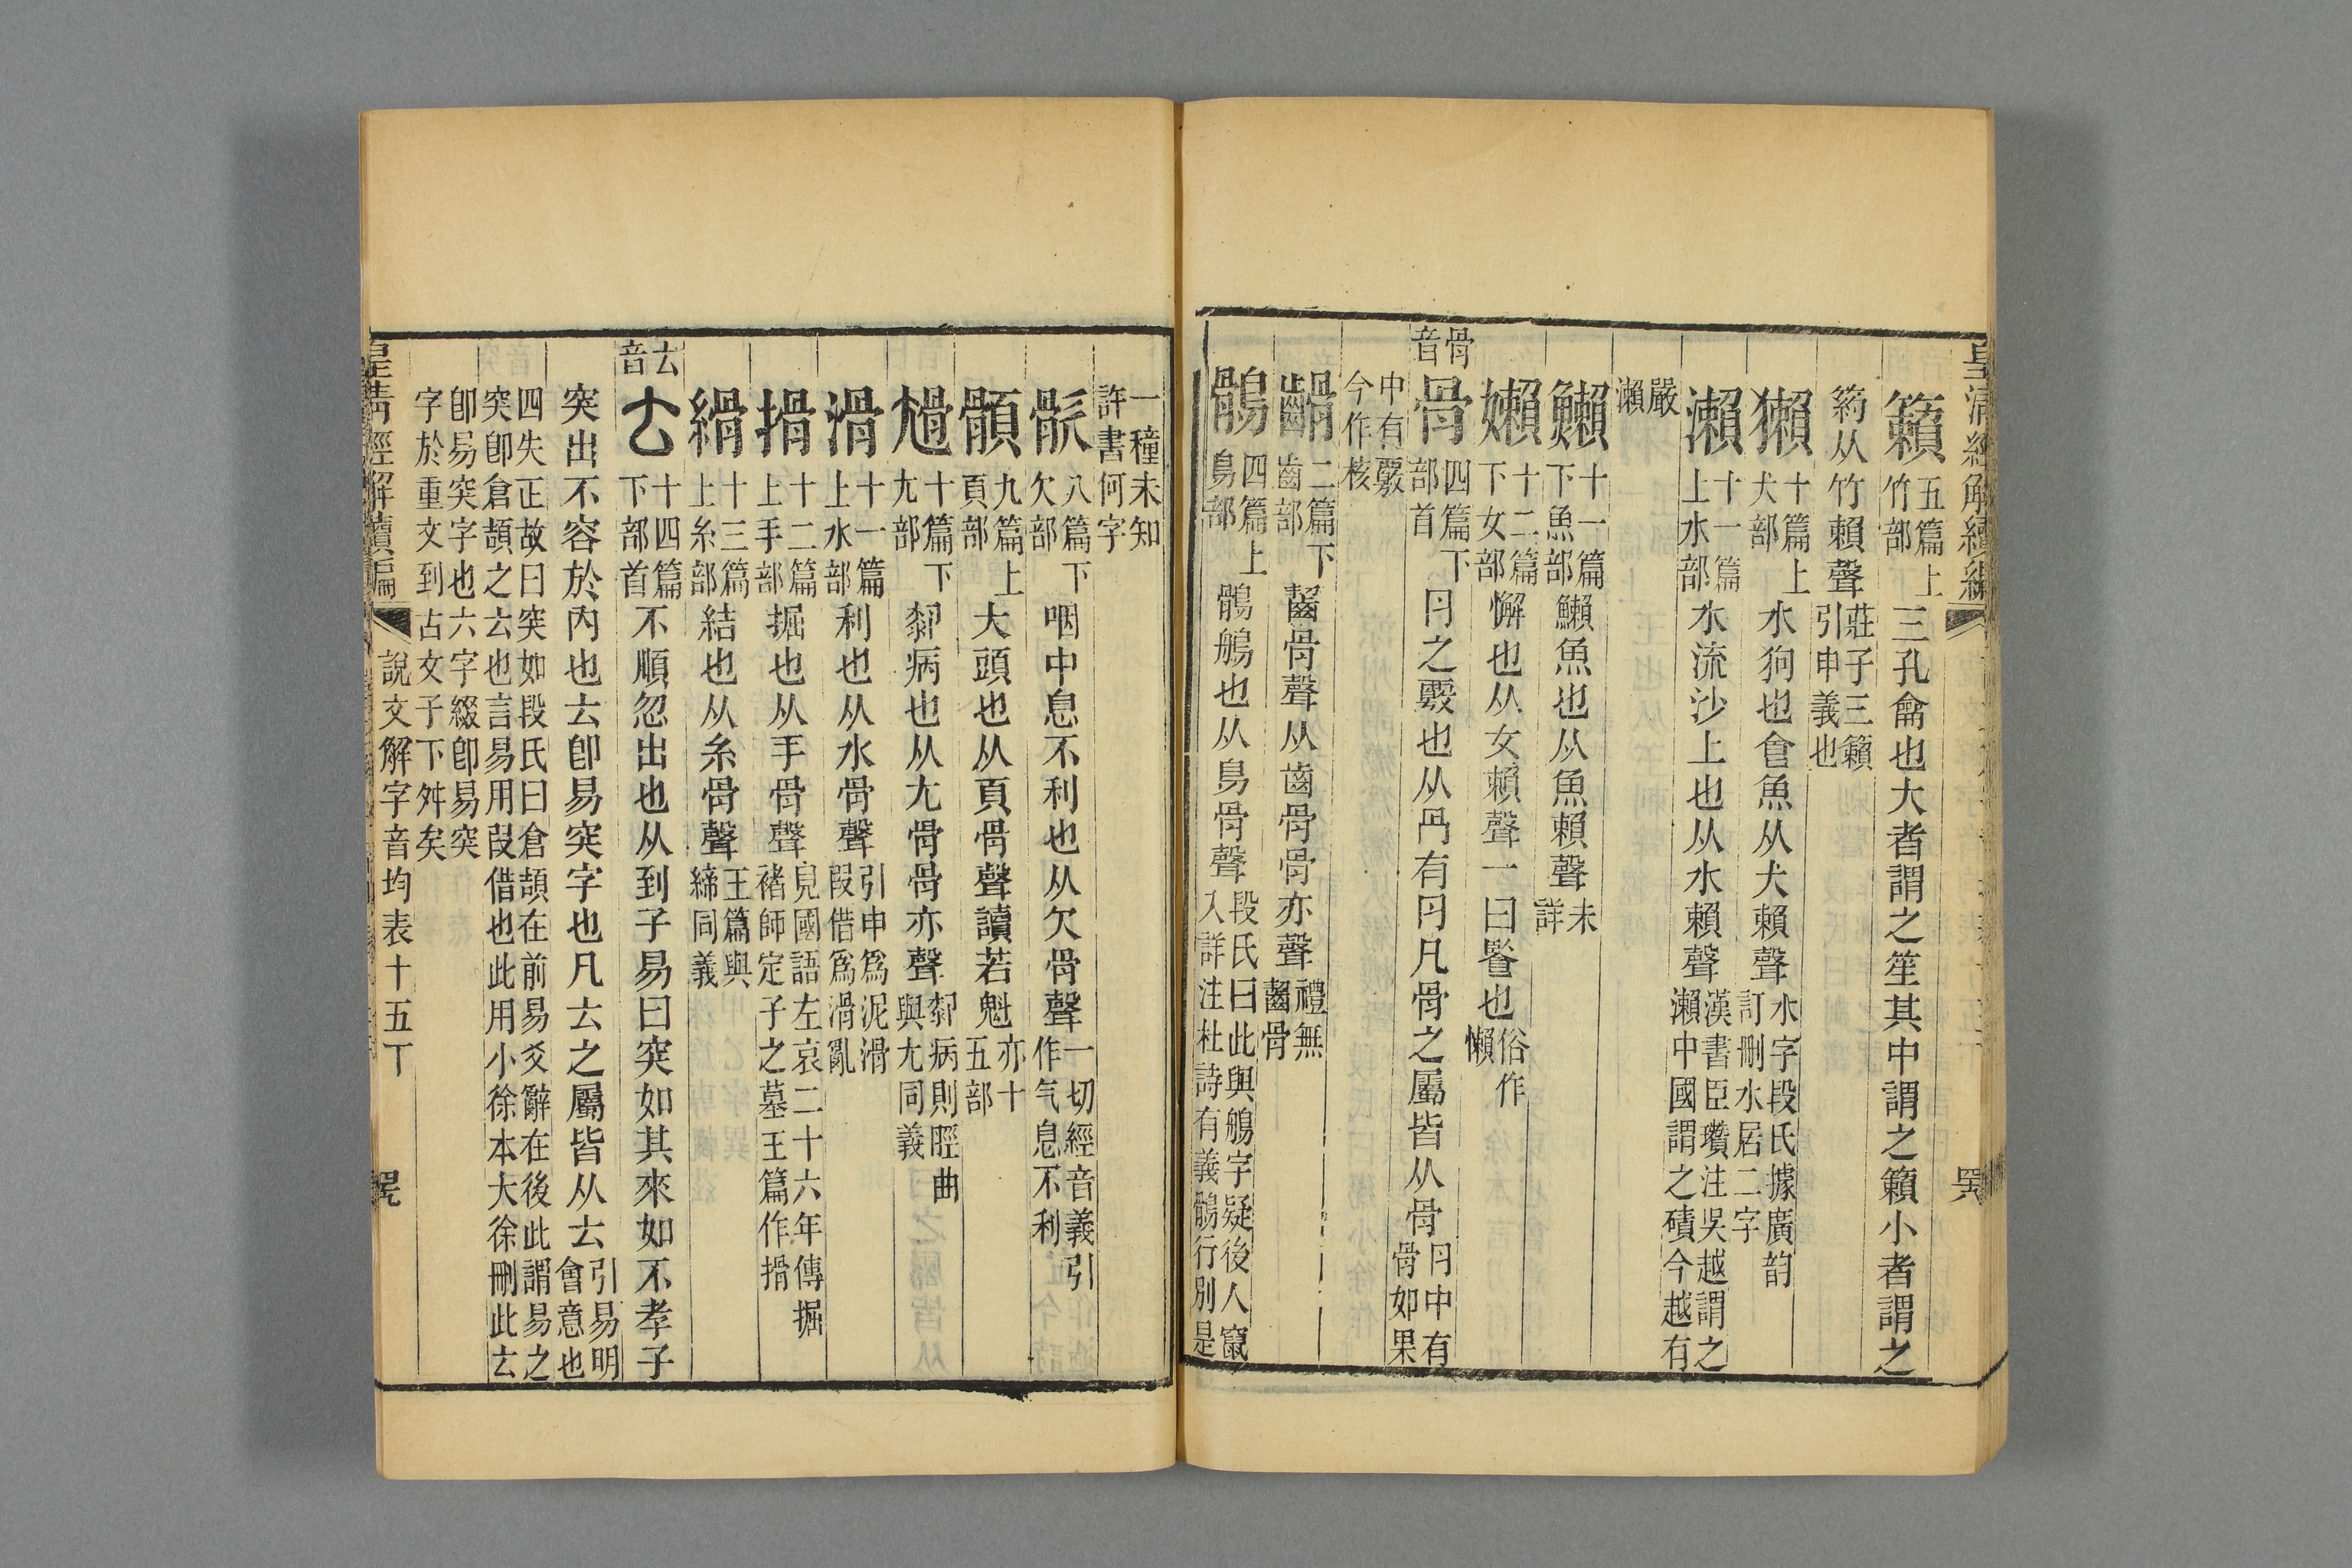 皇清經解續編
籟五篇上竹部三孔龠也大者謂之笙其中謂之籟小者謂之
箹从竹賴聲莊子三籟引申義也
獺十篇上犬部水狗也食魚从犬賴聲水字段氏據廣韵訂刪水居二字
瀨十一篇上水部水流沙上也从水賴聲漢書臣瓚注吳越謂之瀨中國謂之磧今越有
嚴瀨
鱲十一篇下魚部鱲魚也从魚賴聲未詳
嬾十二篇下女部懈也从女賴聲一曰䝨也俗作懶
骨音
骨四篇下部首冃之覈也从冎有冃凡骨之屬皆从骨冃中有骨如果
中有覈今作核
䶤二篇下齒部齧骨聲从齒骨骨亦聲禮無齧骨
鶻四篇上鳥部鶻鵃也从鳥骨聲段氏曰此與鵃字疑後人竄入詳注杜詩有義鶻行別是
一種未知許書何字
䯉八篇下欠部咽中息不利也从欠骨聲一切經音義引作气息不利
䫇九篇上頁部大頭也从頁骨聲讀若魁亦十五部
尳十篇下尢部䣛病也从尢骨骨亦聲䣛病則脛曲與尢同義
滑十一篇上水部利也从水骨聲引申爲泥滑叚借爲滑亂
搰十二篇上手部掘也从手骨聲見國語左哀二十六年傳掘褚師定子之墓王篇作搰
縎十三篇上糸部結也从糸骨聲王篇與締同義
𠫓音
𠫓十四篇下部首不順忽出也从到子易曰突如其來如不孝子
突出不容於內也𠫓卽易突字也凡𠫓之屬皆从𠫓引易明會意也
四失正故曰突如段氏曰倉頡在前易爻辭在後此謂易之突卽倉頡之𠫓也言易用叚借也此用小徐本大徐刪此𠫓
卽易突字也六字綴卽易突字於重文到古文子下舛矣
皇清經解續編
說文解字音均表十五丅